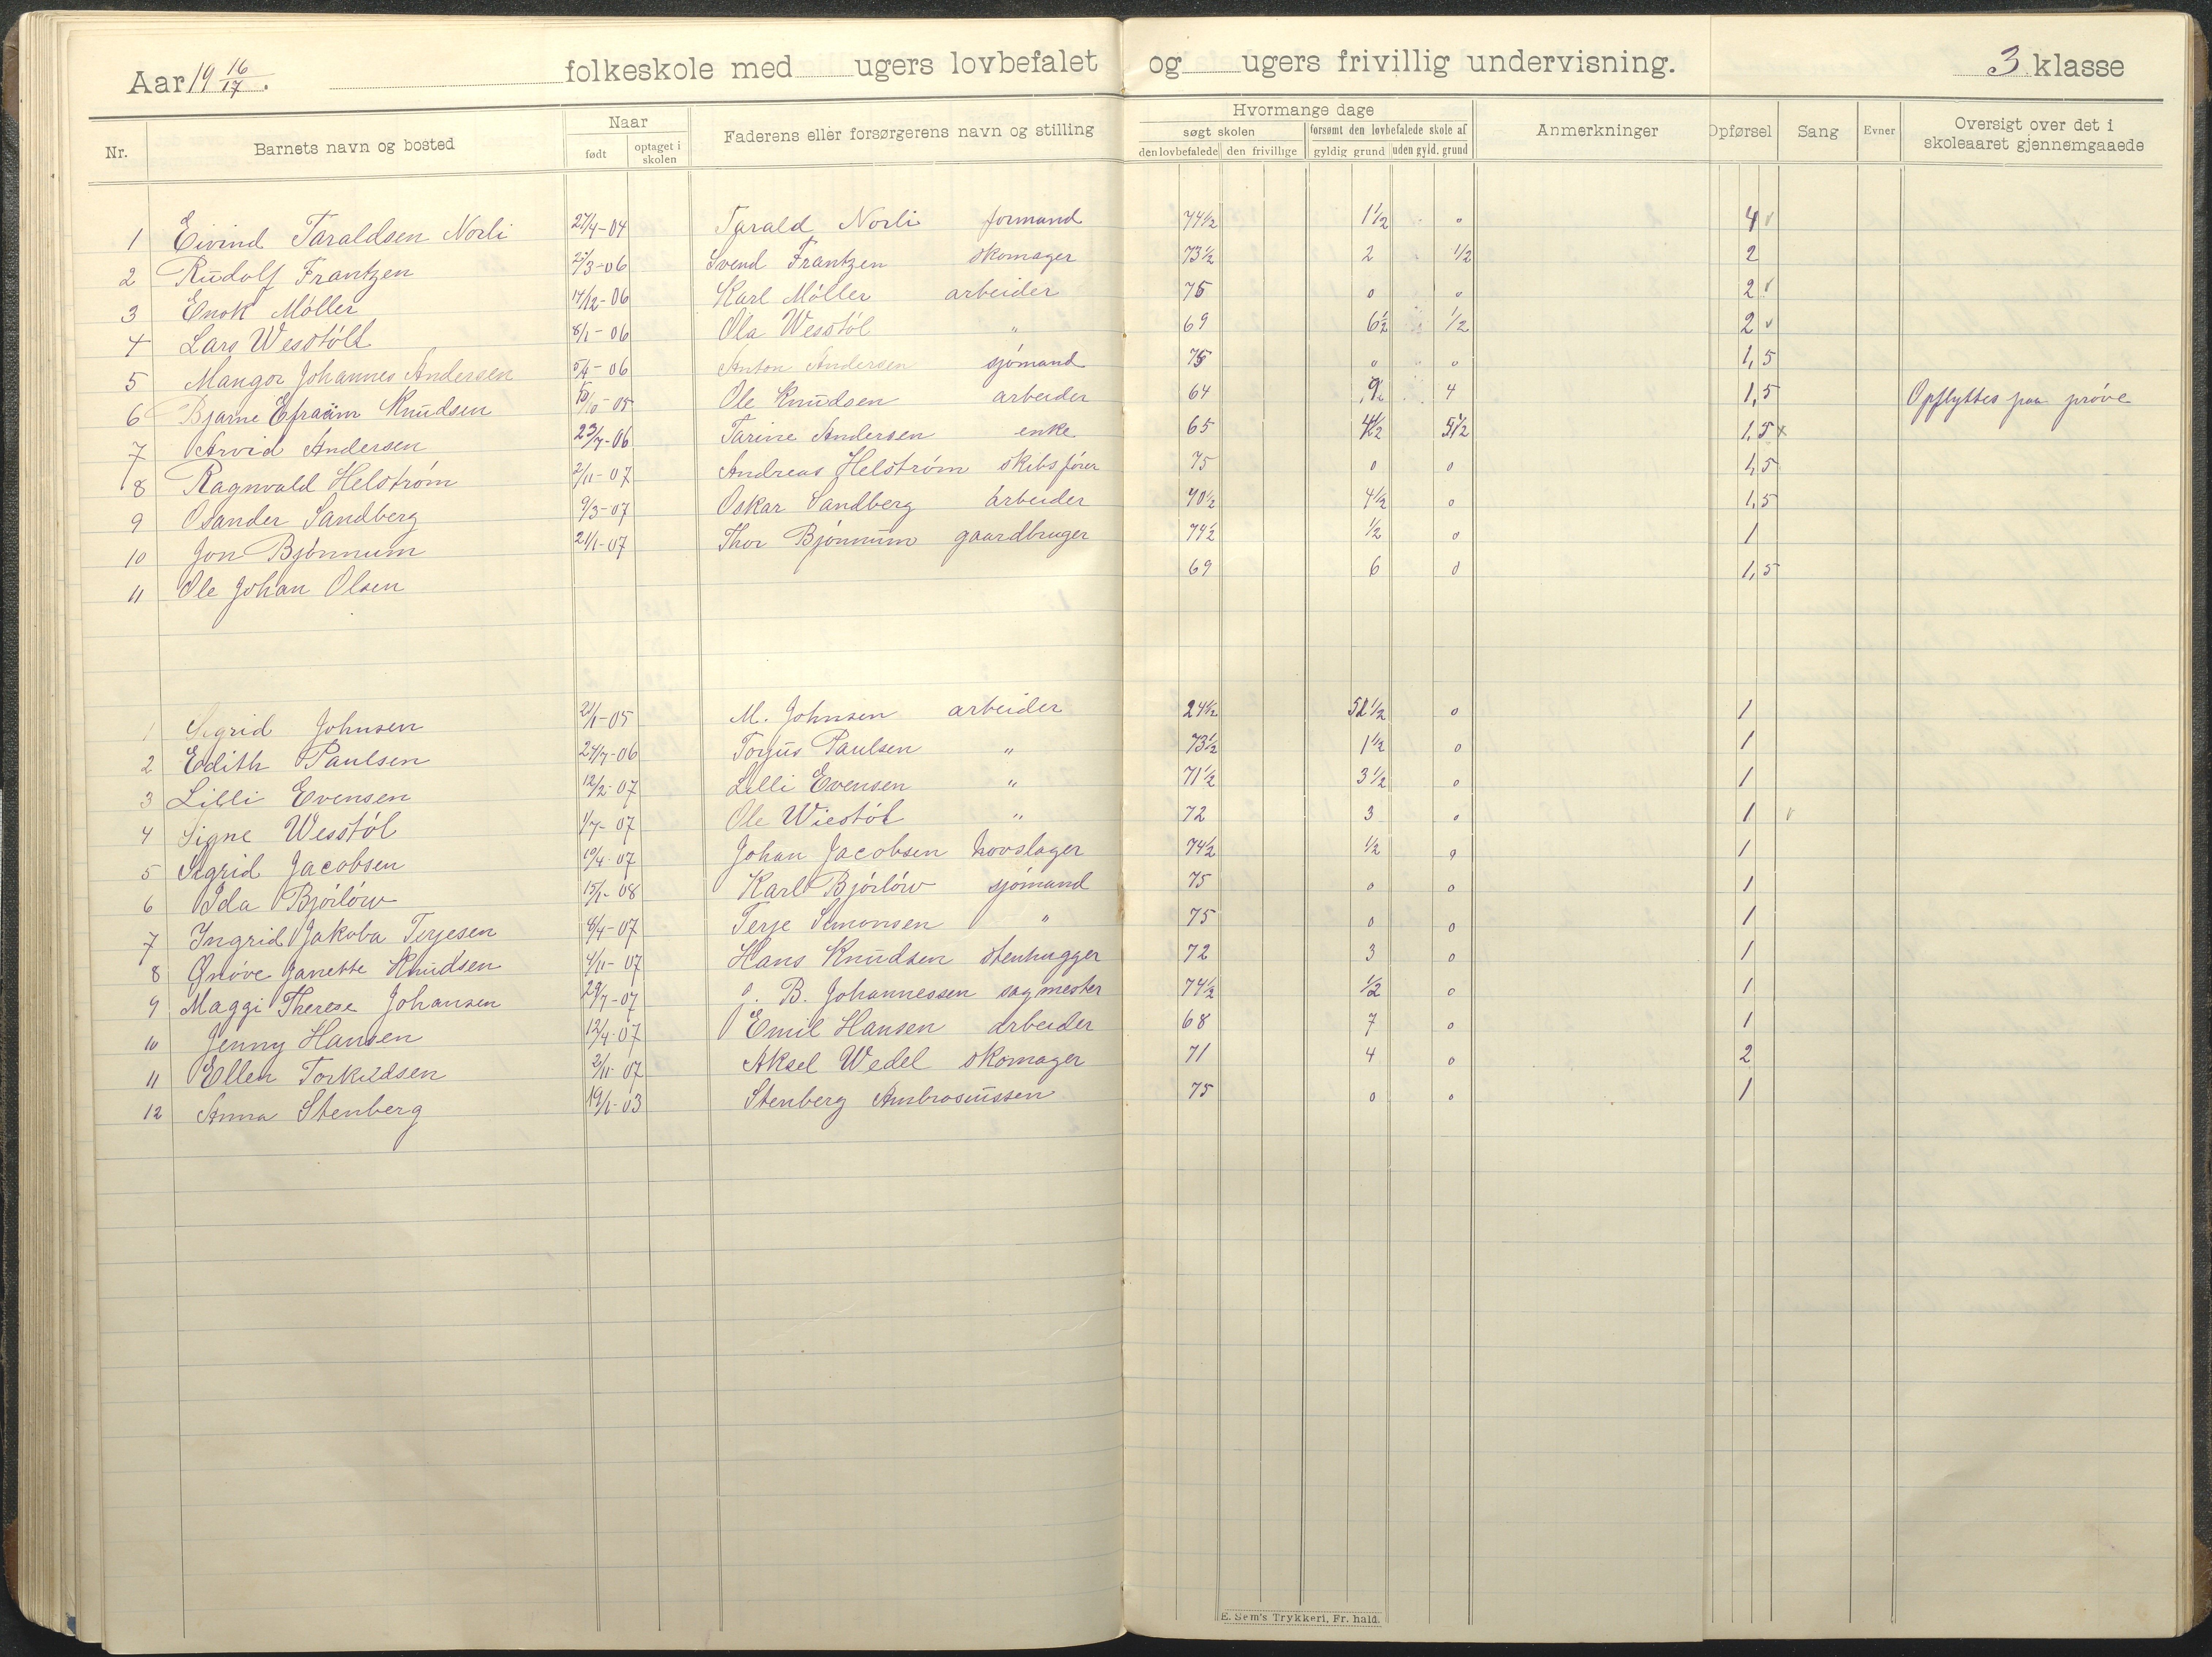 Aar 19 16/17. folkeskole med ugers lovbefalet og ugers frivillig undervisning. 3 klasse
Nr. Barnets navn og bosted Naar født optaget i skolen Faderens eller forsørgerens navn og stilling Hvormange dage søgt skolen den lovbefalede den frivillige forsømt den lovbefalede skole af gyldig grund uden gyld. grund Anmerkninger Opførsel Sang Evner Oversigt over det i skoleaaret gjennemgaaede
1 Eivind Taraldsen Norli 27/4-04 Tarald Norli formand 74½ 1½ " 4 v
2 Rudolf Frantzen /3-06 Svend Frantzen skomager 73½ 2 ½ 2
3 Enok Møller 14/12-06 Karl Møller arbeider 75 0 " 2 v
4 Lars Wesstøll 8/1-06 Ola Wesstøl " 69 6½ ½ 2 v
5 Mangor Johannes Andersen 5/4-06 Anton Andersen sjømand 75 " 0 1,5
6 Bjarne Efraim Knudsen /10-05 Ole Knudsen arbeider 64 4 1,5 Opflyttes paa prøve
7 Arvid Andersen 23/7-06 Tarine Andersen enke 65 4½ 5½ 1,5 x
8 Ragnvald Helstrøm 2/11-07 Andreas Helstrøm skibsfører 75 0 0 1,5
9 Osander Sandberg 9/3-07 Oskar Sandberg arbeider 70½ 4½ 0 1,5
10 Jon Bjønnum 21/1-07 Thor Bjønnum gaardbruger 74½ ½ 0 1
11 Ole Johan Olsen 69 6 0 1,5
1 Sigrid Johnsen 21/1-05 M. Johnsen arbeider 24½ 50½ 0 1
2 Edith Paulsen 24/7-06 Torjus Paulsen " 73½ 1½ 0 1
3 Lilli Evensen 12/2-07 Lilli Evensen " 71½ 3½ 0 1
4 Signe Wesstøl 1/7-07 Ole Wiestøl " 72 3 0 1 v
5 Sigrid Jacobsen 10/4-07 Johan Jacobsen hovslager 74½ ½ 0 1
6 Ida Bjørløw 15/1-08 Karl Bjørløw sjømand 75 0 0 1
7 Ingrid Jakoba Terjesen 8/4-07 Terje Simonsen " 75 0 0 1
8 Gnøve Janette Knudsen 4/11-07 Hans Knudsen stenhugger 72 3 0 1
9 Maggi Therese Johansen 29/7-07 J. B. Johannessen sagmester 74½ ½ 0 1
10 Jenny Hansen 12/4-07 Emil Hansen arbeider 68 7 0 1
11 Ellen Torkildsen 2/11-07 Aksel Wedel skomager 71 4 0 2
12 Anna Stenberg 19/1-03 Stenberg Ambrosiussen 75 0 0 1
E. Sem's Trykkeri, Fr. hald.